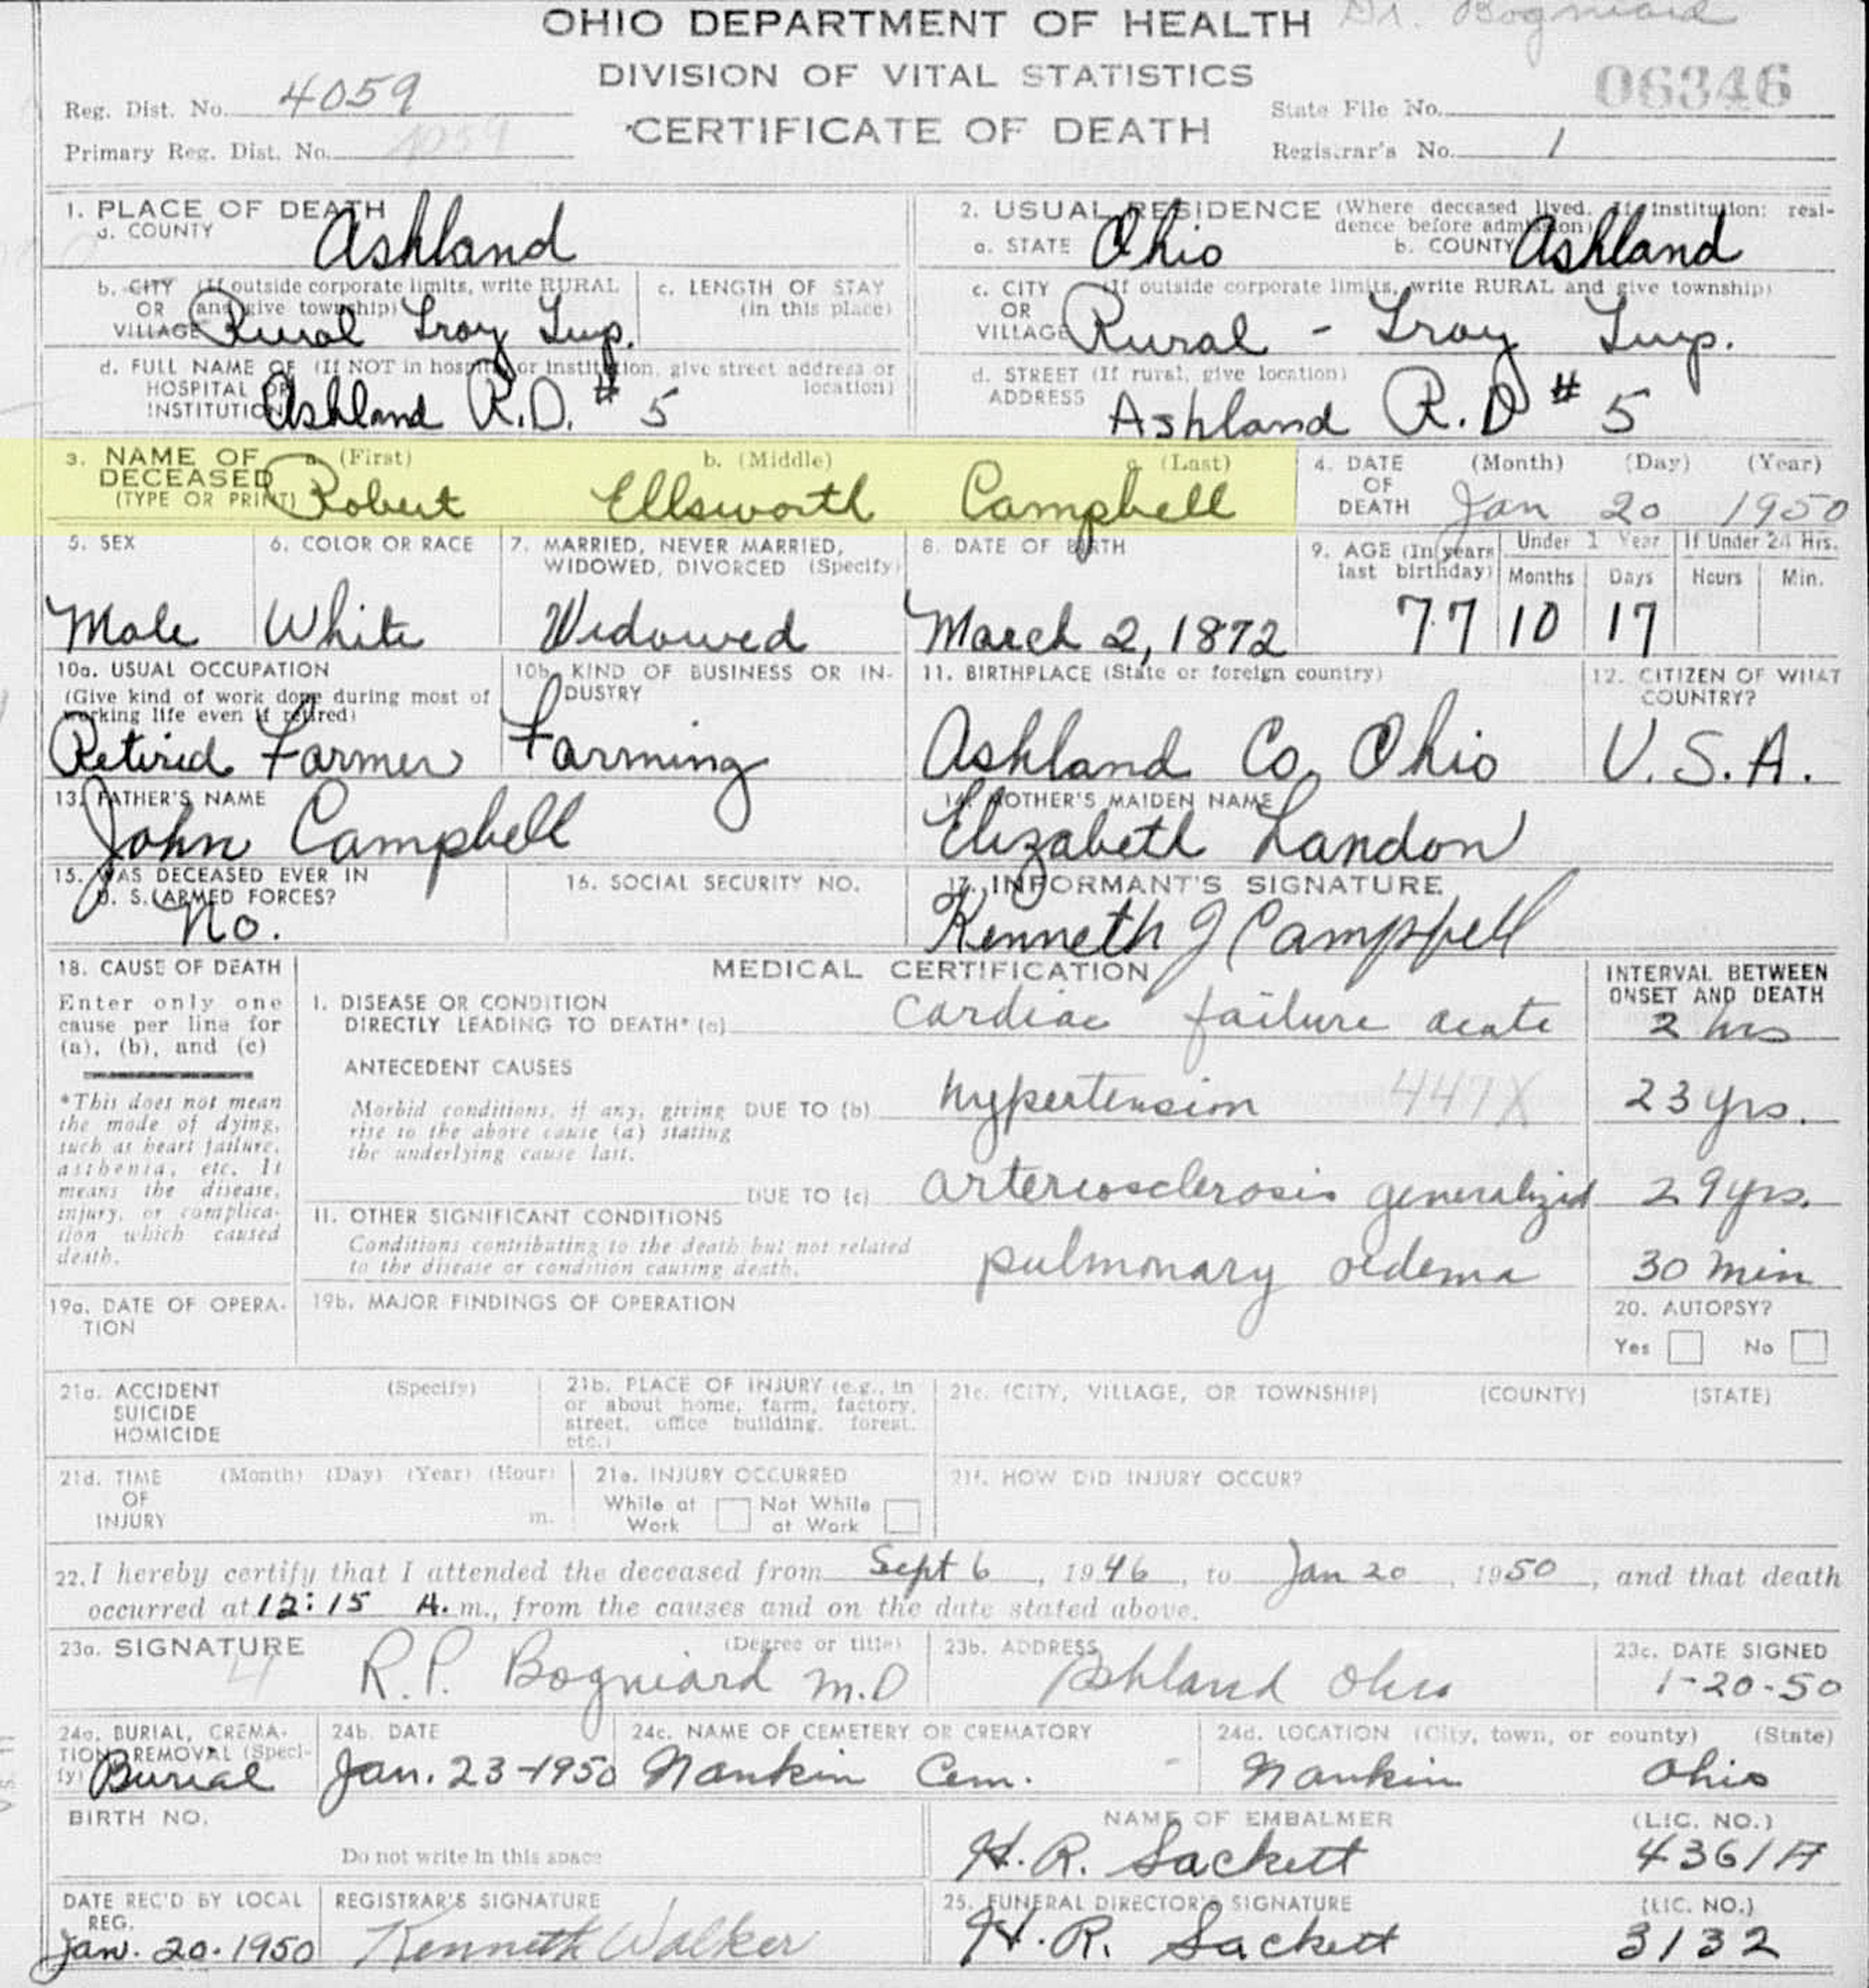 OHIO DEPARTMENT OF HEALTH Dr. Bogniard
DIVISION OF VITAL STATISTICS
CERTIFICATE OF DEATH
Reg. Dist. No. 4059
Primary Reg. Dist. No. 4059
State File No. 06346
Registrar's No. 1
1. PLACE OF DEATH
a. COUNTY Ashland
2. USUAL RESIDENCE (Where deceased lived. If institution: resi-
dence before admission)
a. STATE Ohio b. COUNTY Ashland
b. CITY (If outside corporate limits, write RURAL
OR and give township)
VILLAGE Rural Troy Twp.
c. LENGTH OF STAY
(in this place)
c. CITY (If outside corporate limits, write RURAL and give township)
OR
VILLAGE Rural - Troy Twp.
d. FULL NAME OF (If NOT in hospital or institution, give street address or
HOSPITAL OR location)
INSTITUTION Ashland R.D. # 5
d. STREET (If rural, give location)
ADDRESS Ashland R.D # 5
3. NAME OF a. (First) b. (Middle) c. (Last)
DECEASED
(TYPE OR PRINT) Robert Ellsworth Campbell
4. DATE (Month) (Day) (Year)
OF
DEATH Jan 20 1950
5. SEX
Male
6. COLOR OR RACE
White
7. MARRIED, NEVER MARRIED,
WIDOWED, DIVORCED (Specify)
Widowed
8. DATE OF BIRTH
March 2, 1872
9. AGE (In years
last birthday)
77
Under 1 Year
Months Days
10 17
If Under 24 Hrs.
Hours Min.
10a. USUAL OCCUPATION
(Give kind of work done during most of
working life even if retired)
Retired Farmer
10b. KIND OF BUSINESS OR IN-
DUSTRY
Farming
11. BIRTHPLACE (State or foreign country)
Ashland Co, Ohio
12. CITIZEN OF WHAT
COUNTRY?
U.S.A.
13. FATHER'S NAME
John Campbell
14. MOTHER'S MAIDEN NAME
Elizabeth Landon
15. WAS DECEASED EVER IN
U. S. ARMED FORCES?
No.
16. SOCIAL SECURITY NO.
17. INFORMANT'S SIGNATURE
Kenneth J Campbell
18. CAUSE OF DEATH
Enter only one
cause per line for
(a), (b), and (c)
*This does not mean
the mode of dying,
such as heart failure,
asthenia, etc. It
means the disease,
injury, or complica-
tion which caused
death.
MEDICAL CERTIFICATION
INTERVAL BETWEEN
ONSET AND DEATH
I. DISEASE OR CONDITION
DIRECTLY LEADING TO DEATH* (a) Cardiac failure acute 2 hrs
ANTECEDENT CAUSES
Morbid conditions, if any, giving DUE TO (b) hypertension 447X 23 yrs.
rise to the above cause (a) stating
the underlying cause last.
DUE TO (c) arteriosclerosis generalized 29 yrs.
II. OTHER SIGNIFICANT CONDITIONS
Conditions contributing to the death but not related
to the disease or condition causing death.
pulmonary oedema 30 min
19a. DATE OF OPERA-
TION
19b. MAJOR FINDINGS OF OPERATION
20. AUTOPSY?
Yes No
21a. ACCIDENT (Specify)
SUICIDE
HOMICIDE
21b. PLACE OF INJURY (e.g., in
or about home, farm, factory,
street, office building, forest,
etc.)
21c. (CITY, VILLAGE, OR TOWNSHIP) (COUNTY) (STATE)
21d. TIME (Month) (Day) (Year) (Hour)
OF
INJURY m.
21e. INJURY OCCURRED
While at Not While
Work at Work
21f. HOW DID INJURY OCCUR?
22. I hereby certify that I attended the deceased from Sept 6, 1946, to Jan 20, 1950, and that death
occurred at 12:15 A.m., from the causes and on the date stated above.
23a. SIGNATURE (Degree or title)
R.P. Bogniard M.D
23b. ADDRESS
Ashland Ohio
23c. DATE SIGNED
1-20-50
24a. BURIAL, CREMA-
TION, REMOVAL (Speci-
fy) Burial
24b. DATE
Jan. 23-1950
24c. NAME OF CEMETERY OR CREMATORY
Nankin Cem.
24d. LOCATION (City, town, or county) (State)
Nankin Ohio
BIRTH NO.
Do not write in this space
NAME OF EMBALMER (LIC. NO.)
H. R. Sackett 4361A
DATE REC'D BY LOCAL
REG.
Jan. 20. 1950
REGISTRAR'S SIGNATURE
Kenneth Walker
25. FUNERAL DIRECTOR'S SIGNATURE (LIC. NO.)
H. R. Sackett 3132